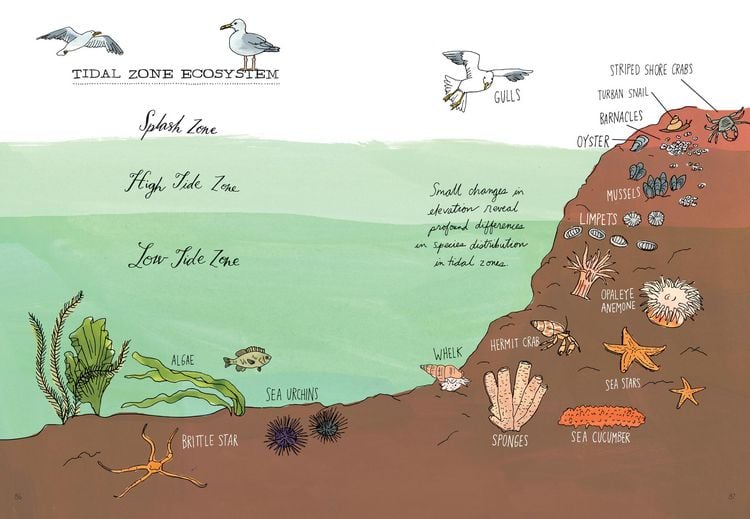 TIDAL ZONE ECOSYSTEM
GULLS
STRIPED SHORE CRABS
TURBAN SNAIL
BARNACLES
OYSTER
Splash Zone
High Tide Zone
Low Tide Zone
Small changes in
elevation reveal
profound differences
in species distribution
in tidal zones.
MUSSELS
LIMPETS
OPALEYE
ANEMONE
HERMIT CRAB
WHELK
ALGAE
SEA URCHINS
SEA STARS
BRITTLE STAR
SPONGES
SEA CUCUMBER
86
87